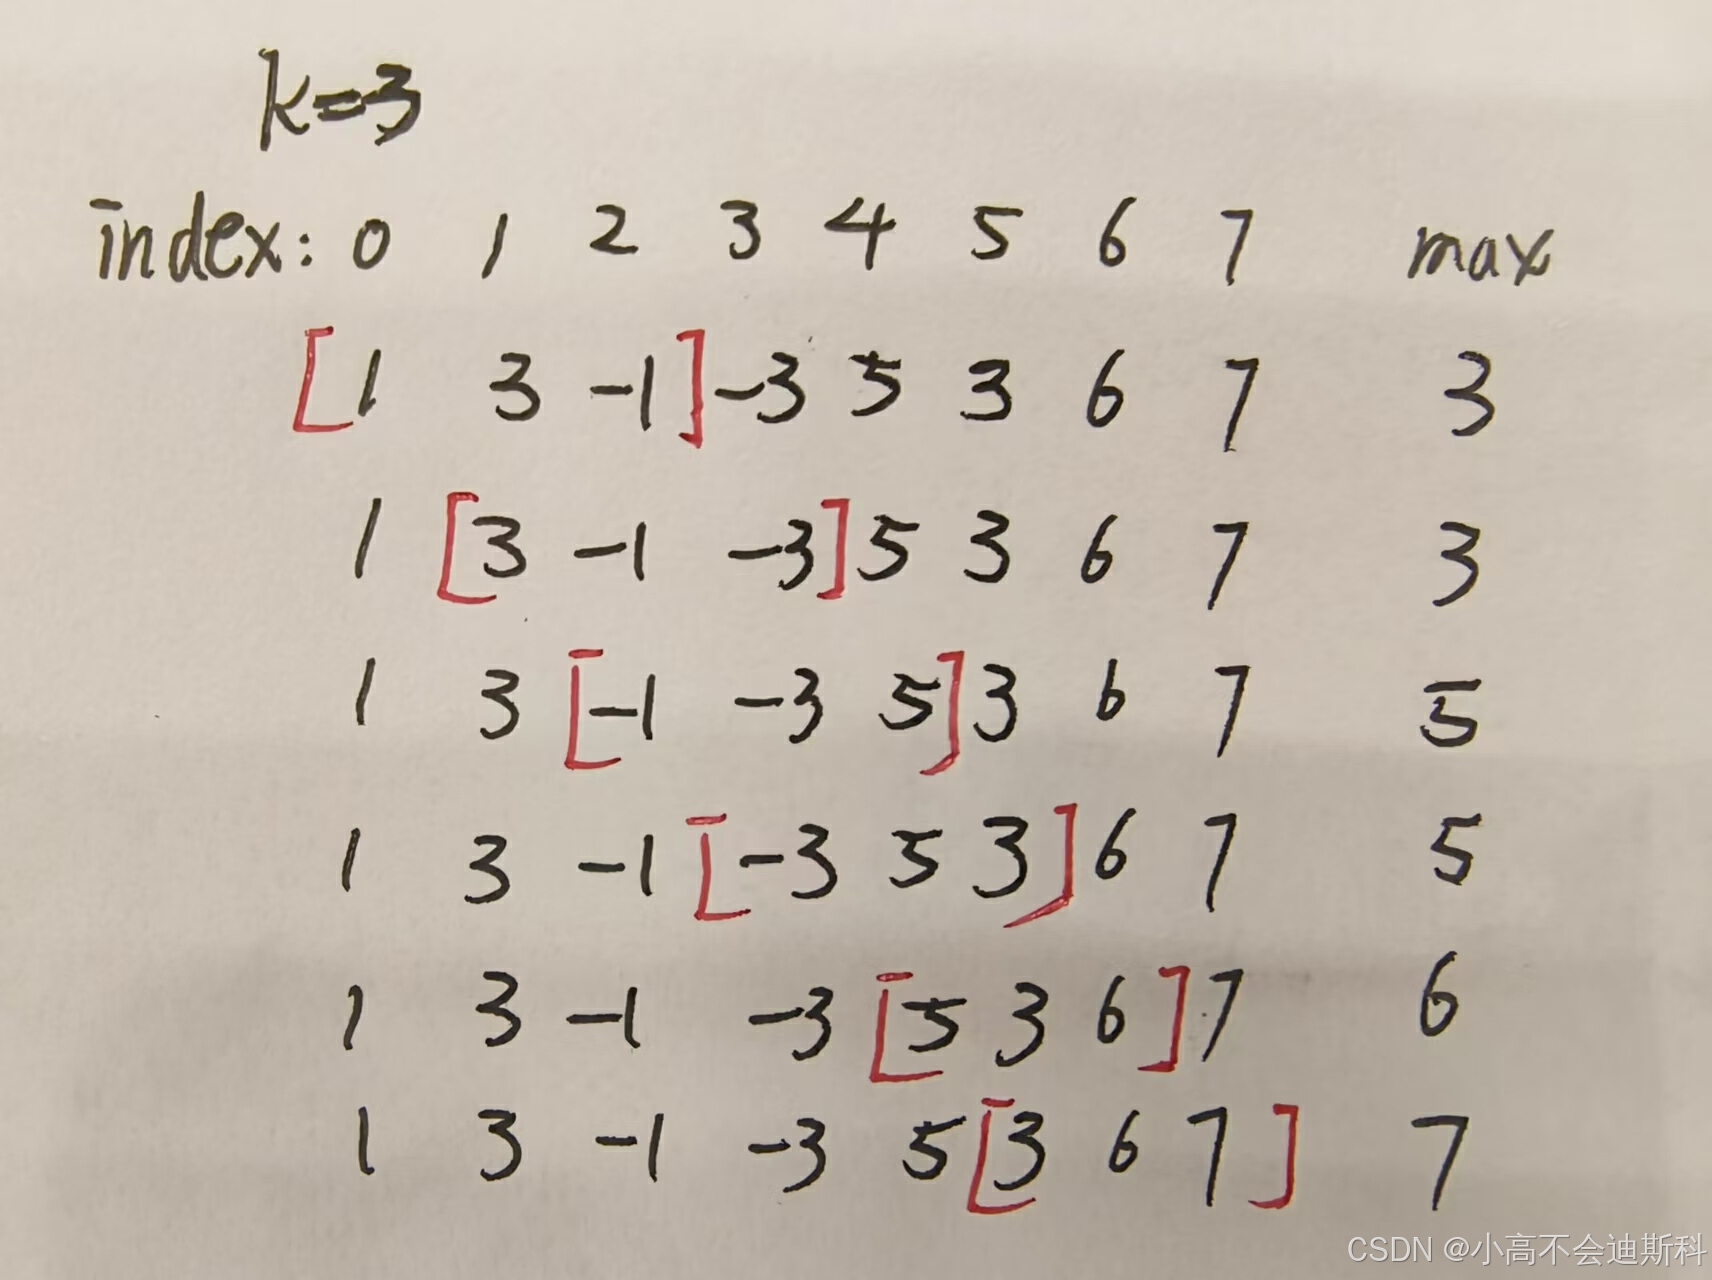 k=3
index: 0 1 2 3 4 5 6 7 max
[1 3 -1] -3 5 3 6 7 3
1 [3 -1 -3] 5 3 6 7 3
1 3 [-1 -3 5] 3 6 7 5
1 3 -1 [-3 5 3] 6 7 5
1 3 -1 -3 [5 3 6] 7 6
1 3 -1 -3 5 [3 6 7] 7
CSDN @小高不会迪斯科